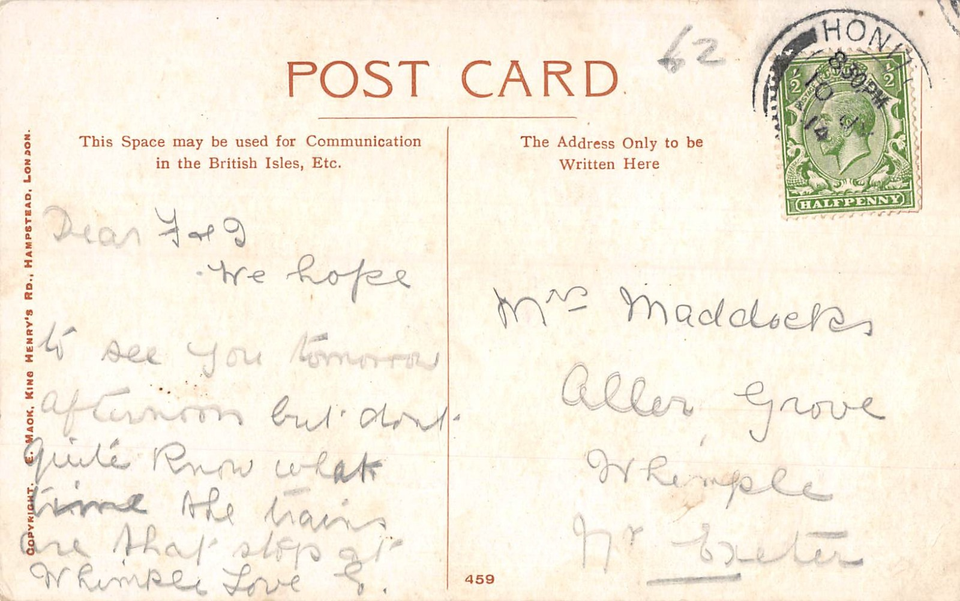 62
POST CARD
HONI
8.30PM
OC
14
HALFPENNY
This Space may be used for Communication
in the British Isles, Etc.
The Address Only to be
Written Here
COPYRIGHT. E. MACK, KING HENRY'S RD., HAMPSTEAD, LONDON.
Dear F & I
We hope
to see you tomorrow
afternoon but dont
quite know what
time the trains
are that stop at
Whimple Love E.
Mrs Maddocks
Aller Grove
Whimple
Nr Exeter
459